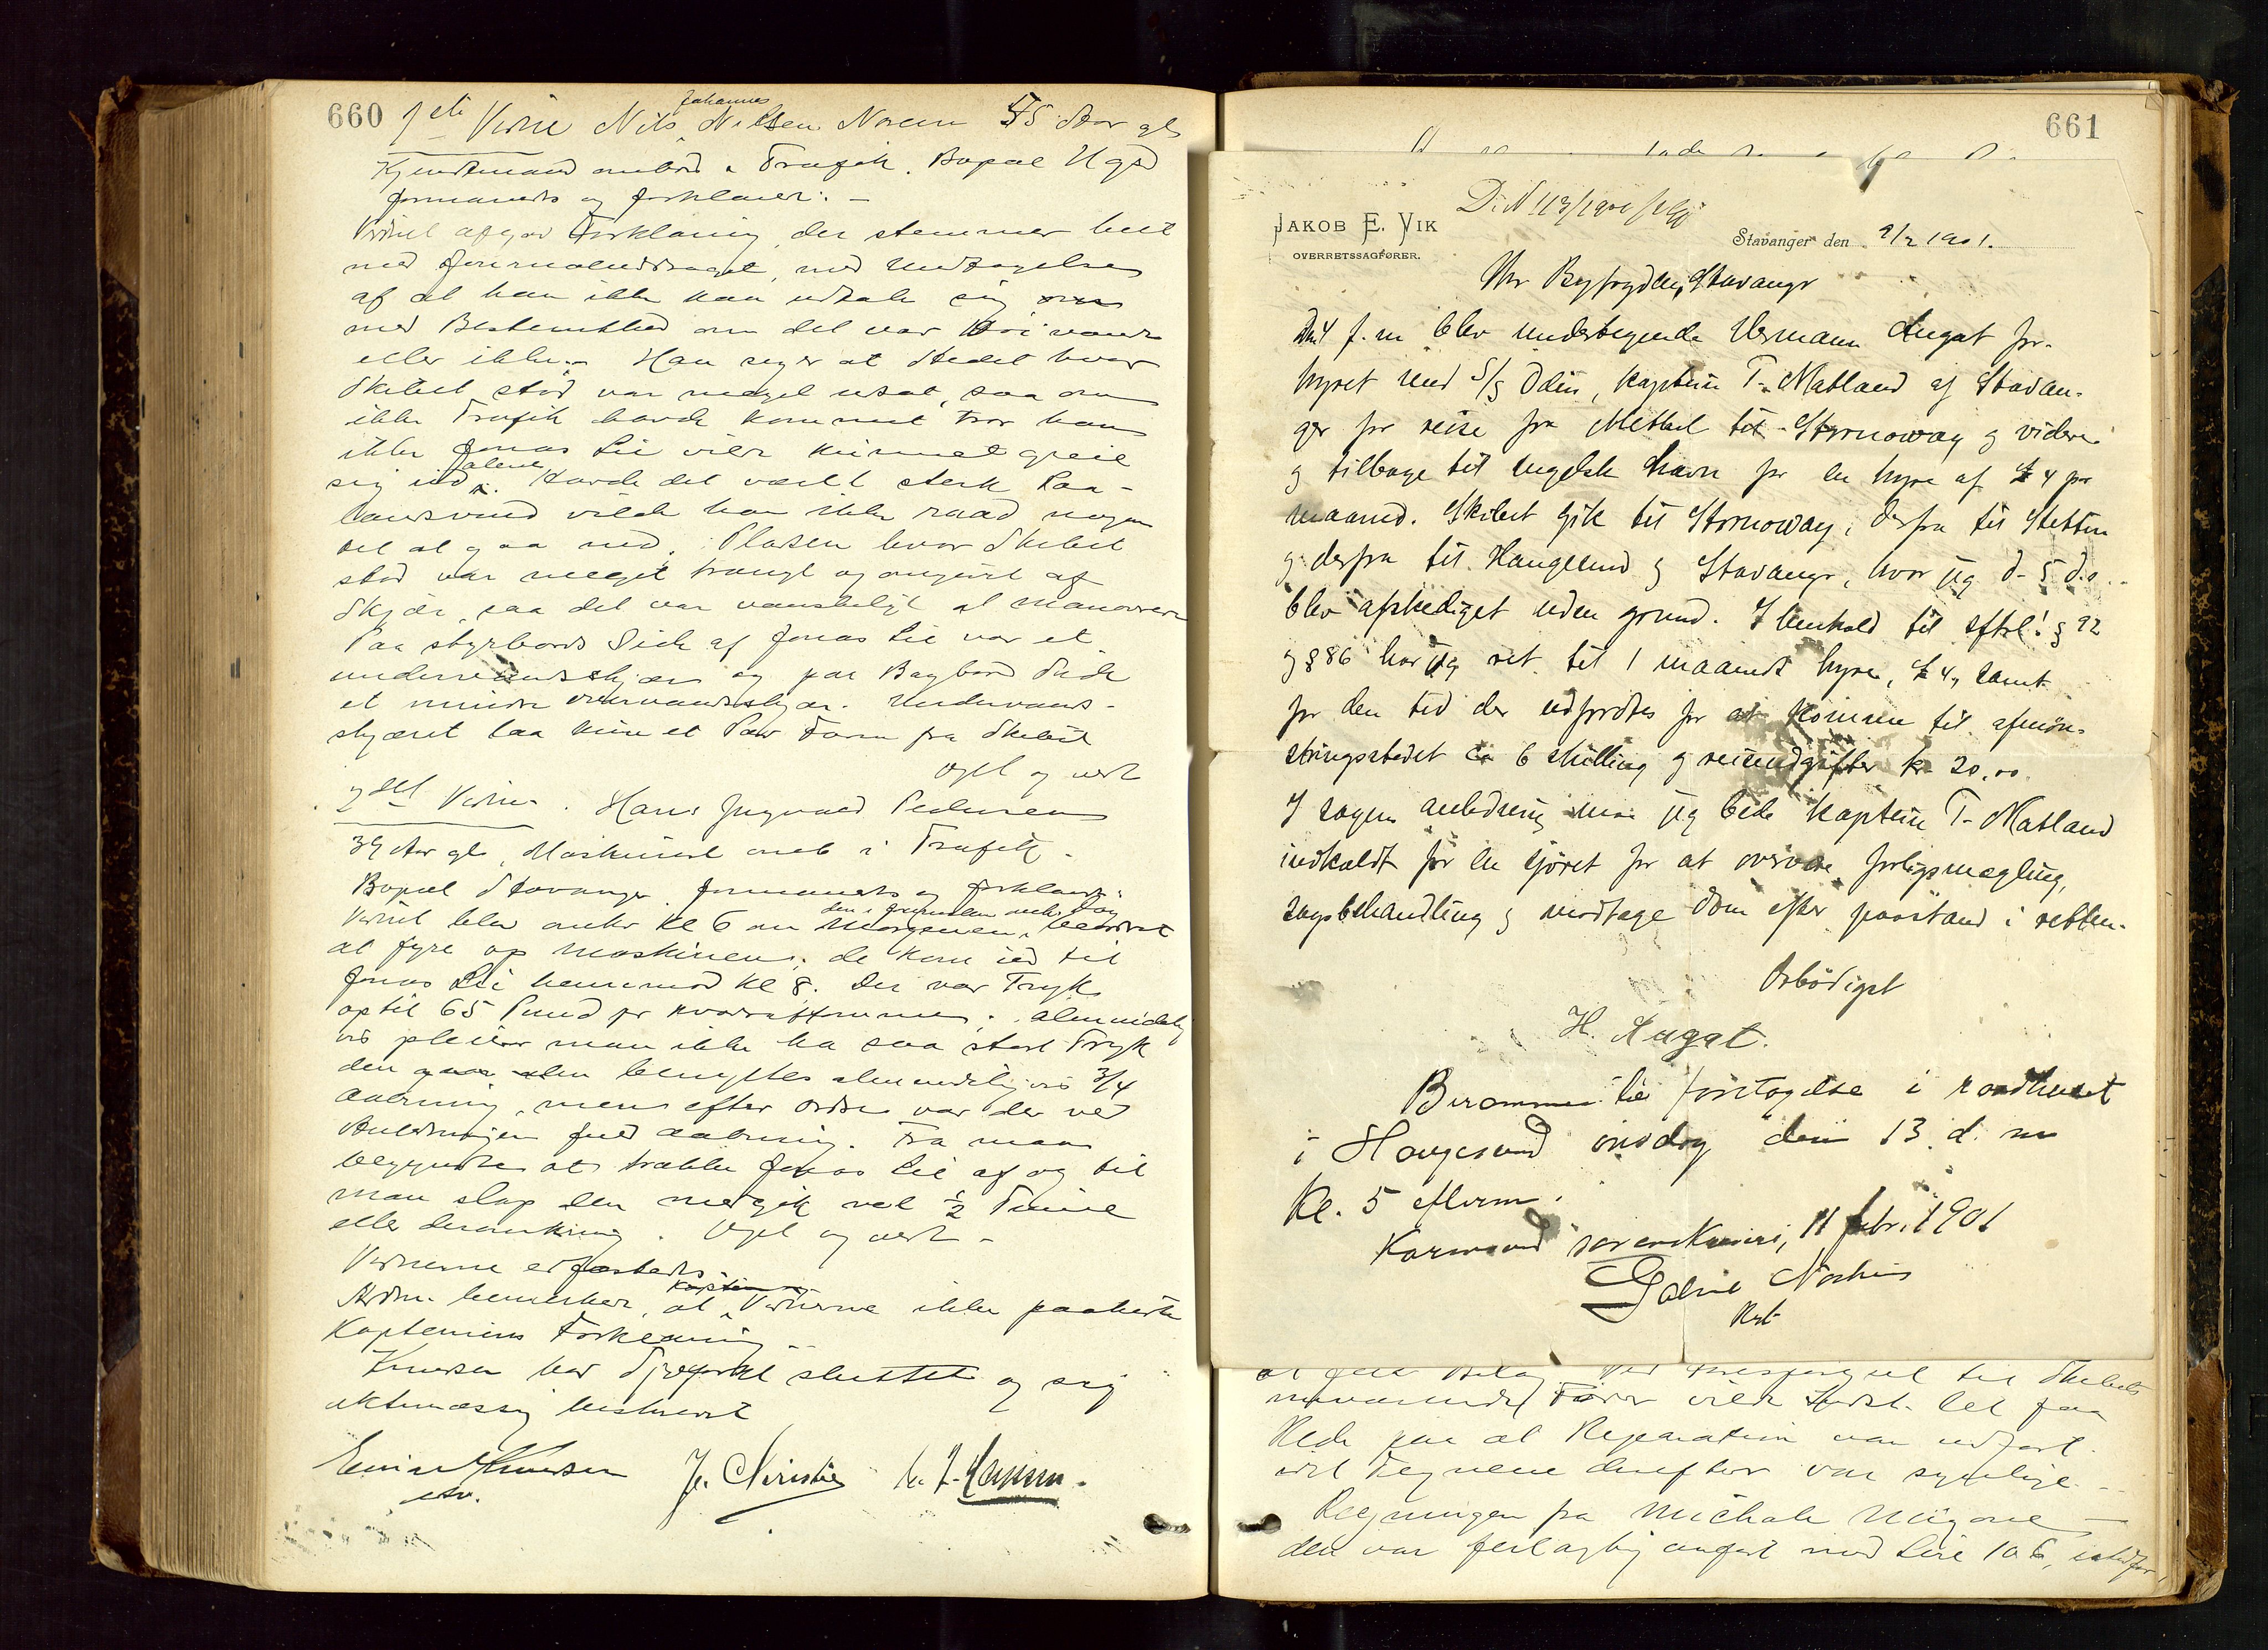 660
1ste Vidne Nils Johannes Nilsen Noreen 55 Aar gl
Kjendtmand ombord i Trafik. Bopæl
formanedes og forklarer: -
Vidnet afgav Forklaring, der stemmer helt
med Journaluddraget, med Undtagelse
af at han ikke kan udtale sig
med Bestemthed om det var Høivande
eller ikke. Han siger at Stedet hvor
Skibet stod var meget usat, saa om
ikke Trafik havde kommet tror han
ikke Jonas Lie vilde kunnet greie
sig ud alene. Havde det været sterk Paa-
landsvind vilde han ikke raad nogen
til at gaa ned. Pladsen hvor Skibet
stod var meget trangt og omgivet af
Skjær, saa det var vanskeligt at manovrere
Paa styrbords Side af Jonas Lie var et
undervandsskjær og paa Bagbord Side
et mindre overvandsskjær. Undervands-
skjæret laa kun et Par Favn fra Skibet
Oplæst og vedt
2det Vidne. Hans Ingvald Pedersen
39 Aar gl, Maskinist omb i Trafik.
Bopæl Stavanger. formanedes og forklarer:
Vidnet blev anke Kl 6 om Morgenen beordret
at fyre op Maskinen; de kom ud til
Jonas Lie henimod Kl 8. Der var Tryk
optil 65 Pund pr kvadrattomme; almindelig
vis pleier man ikke ha saa stort Tryk
den benyttes almindeligvis 3/4
Aabning, men efter Ordre var der ved
Anledningen fuld Aabning. Fra man
begyndte at trække Jonas Lie af og til
man slap den medgik vel 1/2 Time
eller deromkring. Oplæst og vedt -
Vidnerne edfæstedes.
bemerker, at Vidnerne ikke paahørte
Kapteinens Forklaring
Knudsen har Sjøforklar sluttet og sig
aktmæssig beskrevet
Einar Knudsen
Je. Christie
661
D. N 113/1901
JAKOB E. VIK
OVERRETSSAGFØRER.
Stavanger den 9/2 1901.
Hr Byfogden, Stavanger
Den 4 f. m blev undertegnede Hermann Augat for-
hyret med S/S Odin, kaptein T. Matland af Stavan-
ger for reise fra Methil til Stornoway og videre
og tilbage til engelsk havn for en hyre af £ 4 pr
maaned. Skibet gik til Stornoway, derfra til Stettin
og derfra til Haugesund og Stavanger, hvor jeg d. 5 d.s.
blev afskediget uden grund. I henhold til sjøfl. § 92
og § 86 har jeg ret til 1 maaneds hyre, £ 4, samt
for den tid der udfordres for at komme til afmøn-
stringsstedet ca 6 shilling og reiseudgifter kr 20.00
I sagens anledning maa jeg bede kaptein T. Matland
indkaldt for en sjøret for at overvære forligsmægling,
sagsbehandling og modtage dom efter paastand i retten.
Ærbødigst
H. Augat.
Berammes til foretagelse i raadhuset
i Haugesund onsdag den 13 d. m
Kl. 5 efterm.
Karmsund sorenskriveri, 11 febr. 1901
at Ved Forespørgsel til Skibets
nuværende Fører vilde Indst. let faa
Rede paa at Reparation var udført.
idet Tegnene derefter var synlige. -
Regningen fra Michale
den var feilagtig anført med Lire 106, istedfor